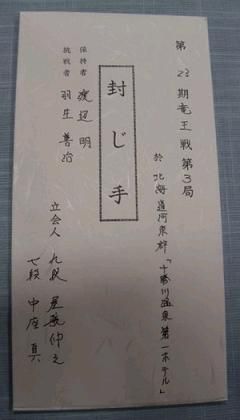 第23期竜王戦第3局
於 北海道河東郡「十勝川温泉第一ホテル」
封じ手
保持者 渡辺 明
挑戦者 羽生 善治
立会人 九段 屋敷伸之
七段 中座 真